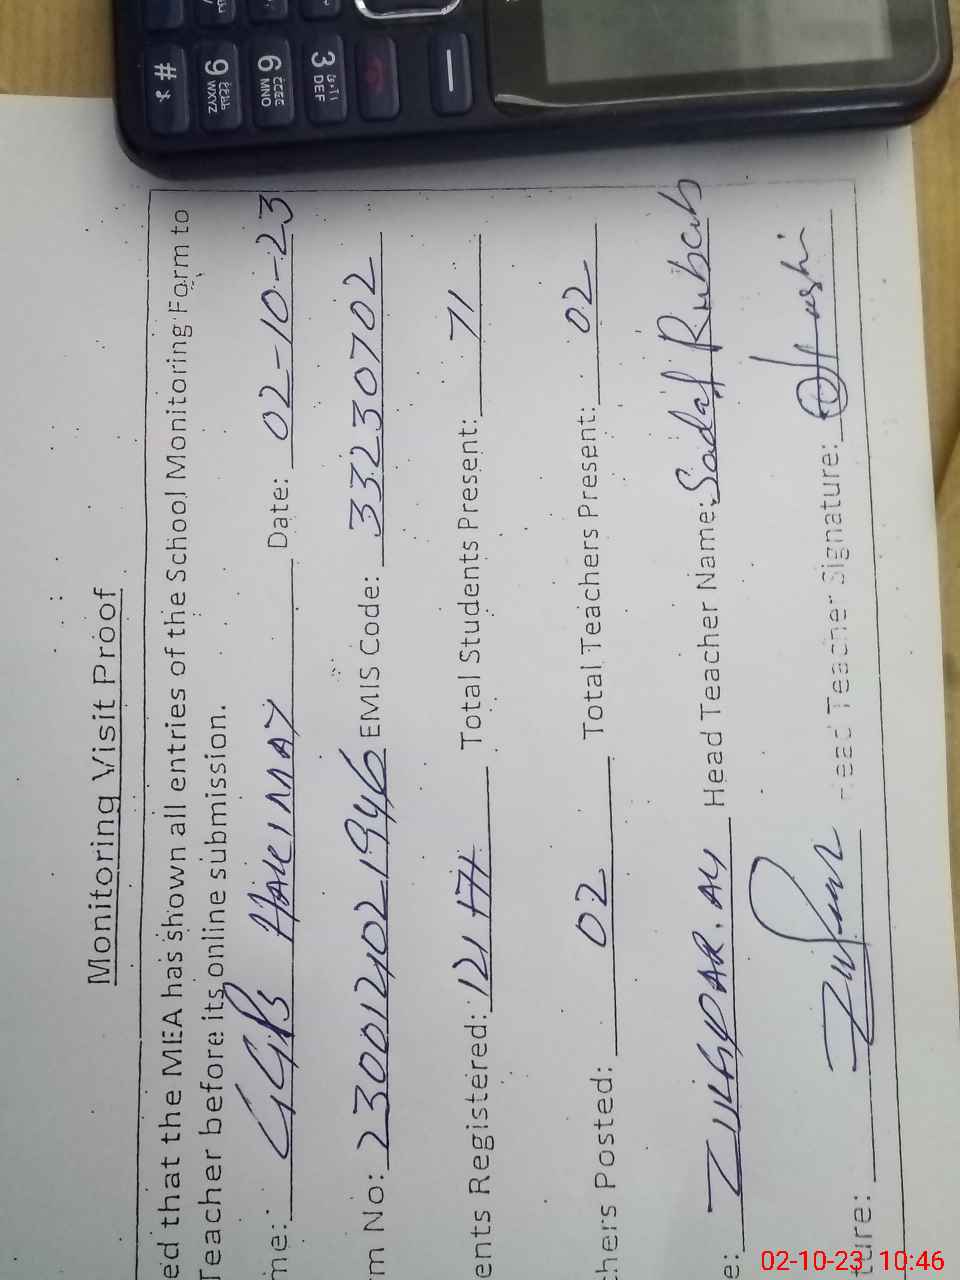 Monitoring Visit Proof
ed that the MEA has shown all entries of the School Monitoring Form to
Teacher before its online submission.
me: GGPS Date: 02-10-23
rm No: 2300124021946 EMIS Code: 33230702
ents Registered: 121 171 Total Students Present: 71
chers Posted: 02 Total Teachers Present: 02
e: ZULFQAR. ALI Head Teacher Name: Sadaf Rubab
ture: Head Teacher Signature:
02-10-23 10:46
# *
9 WXYZ
6 MNO
3 DEF